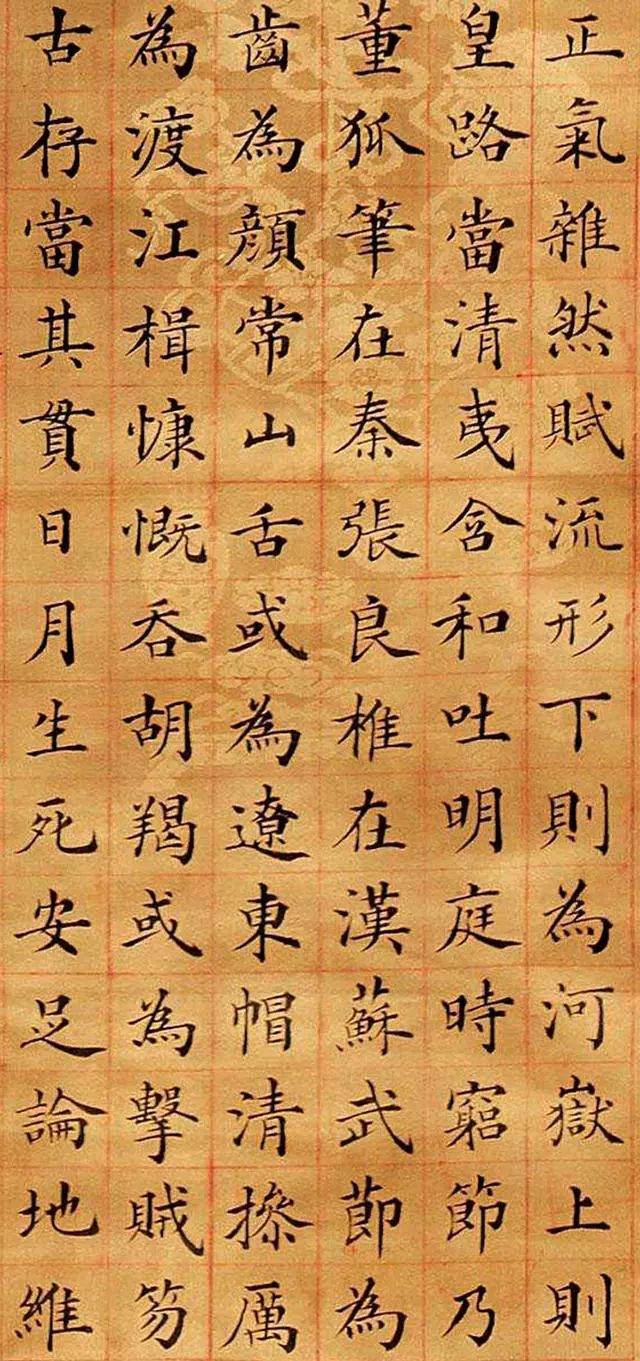 正氣雜然賦流形下則為河嶽上則
皇路當清夷含和吐明庭時窮節乃
董狐筆在秦張良椎在漢蘇武節為
齒為顏常山舌或為遼東帽清操厲
為渡江楫慷慨吞胡羯或為擊賊笏
古存當其貫日月生死安足論地維